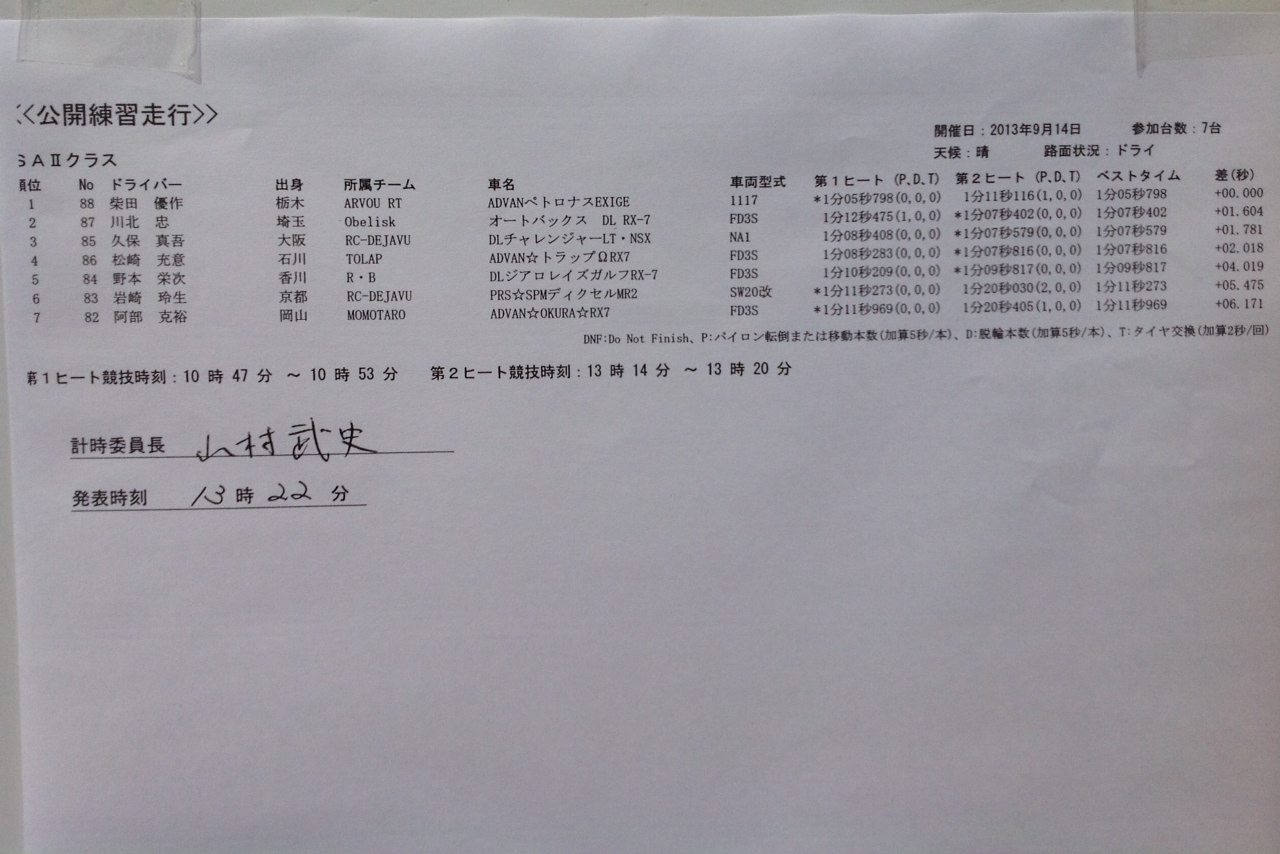 <<公開練習走行>>
開催日：2013年9月14日 参加台数：7台
天候：晴 路面状況：ドライ
SAⅡクラス
順位 No ドライバー 出身 所属チーム 車名 車両型式 第1ヒート (P、D、T) 第2ヒート (P、D、T) ベストタイム 差(秒)
1 88 柴田 優作 栃木 ARVOU RT ADVANペトロナスEXIGE 1117 *1分05秒798(0,0,0) 1分11秒116(1,0,0) 1分05秒798 +00.000
2 87 川北 忠 埼玉 Obelisk オートバックス DL RX-7 FD3S 1分12秒475(1,0,0) *1分07秒402(0,0,0) 1分07秒402 +01.604
3 85 久保 真吾 大阪 RC-DEJAVU DLチャレンジャーLT・NSX NA1 1分08秒408(0,0,0) *1分07秒579(0,0,0) 1分07秒579 +01.781
4 86 松崎 充意 石川 TOLAP ADVAN☆トラップΩRX7 FD3S 1分08秒283(0,0,0) *1分07秒816(0,0,0) 1分07秒816 +02.018
5 84 野本 栄次 香川 R・B DLジアロレイズガルフRX-7 FD3S 1分10秒209(0,0,0) *1分09秒817(0,0,0) 1分09秒817 +04.019
6 83 岩崎 玲生 京都 RC-DEJAVU PRS☆SPMディクセルMR2 SW20改 *1分11秒273(0,0,0) 1分20秒030(2,0,0) 1分11秒273 +05.475
7 82 阿部 克裕 岡山 MOMOTARO ADVAN☆OKURA☆RX7 FD3S *1分11秒969(0,0,0) 1分20秒405(1,0,0) 1分11秒969 +06.171
DNF:Do Not Finish、P:パイロン転倒または移動本数(加算5秒/本)、D:脱輪本数(加算5秒/本)、T:タイヤ交換(加算2秒/回)
第1ヒート競技時刻：10 時 47 分 ～ 10 時 53 分 第2ヒート競技時刻：13 時 14 分 ～ 13 時 20 分
計時委員長 山村武史
発表時刻 13 時 22 分